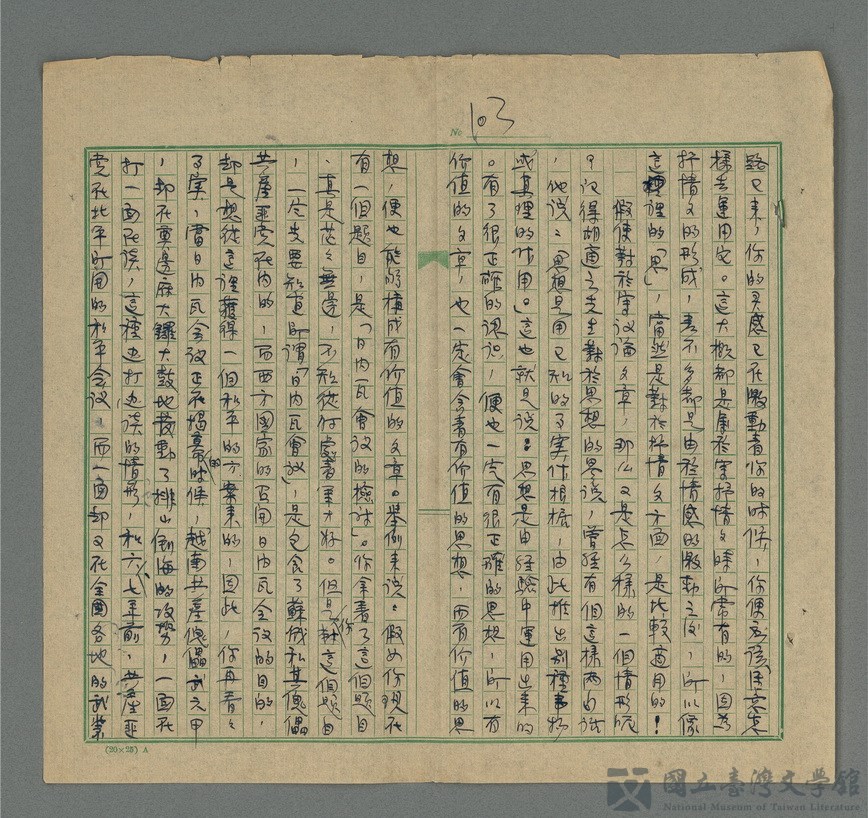 No 103
路已来，你的灵感已在激動着你的时候，你便应该注意怎
樣去運用它。這大概都是属於寫抒情文時所常有的，因為
抒情文的形成，差不多都是由於情感的激動之後，所以像
這種裡的「思」，當然是對於抒情文方面，是比較適用的！
假使對於寫议論文章，那么又是怎么樣的一個情形呢
？记得胡適之先生對於思想的思議，曾経有個這樣两句话
，他说：「思想是用已知的事实作根据，由此推出别種事物
或真理的作用。」這也就是说：思想是由経驗中運用出来的
。有了很正確的認识，便也一定有很正確的思想，所以有
价值的文章，也一定會含着有价值的思想，而有价值的思
想，便也能够構成有价值的文章。举例来说。假如你现在
有一個题目，是「日内瓦會议的檢讨」。你拿着了這個题目
，真是茫々無邊，不知從何處着筆才好。但是你對這個题目
，一定先要知道所谓「日内瓦會议」，是包含了蘇俄和其傀儡
共產匪党在内的，而西方國家的召開日内瓦会议的目的，
却是想從這裡獲得一個和平的方案来的，因此，你再看々
事实，當日内瓦会议正在揭幕的时候，越南共產傀儡武元甲
，却在奠邊府大鑼大鼓地發動了排山倒海的攻势，一面在
打一面在谈，這種边打边谈的情形，和六、七年前，共產匪
党在北平所開的和平會议，而一面却又在全國各地的武装
(20×25) A
國立臺灣文學館
National Museum of Taiwan Literature